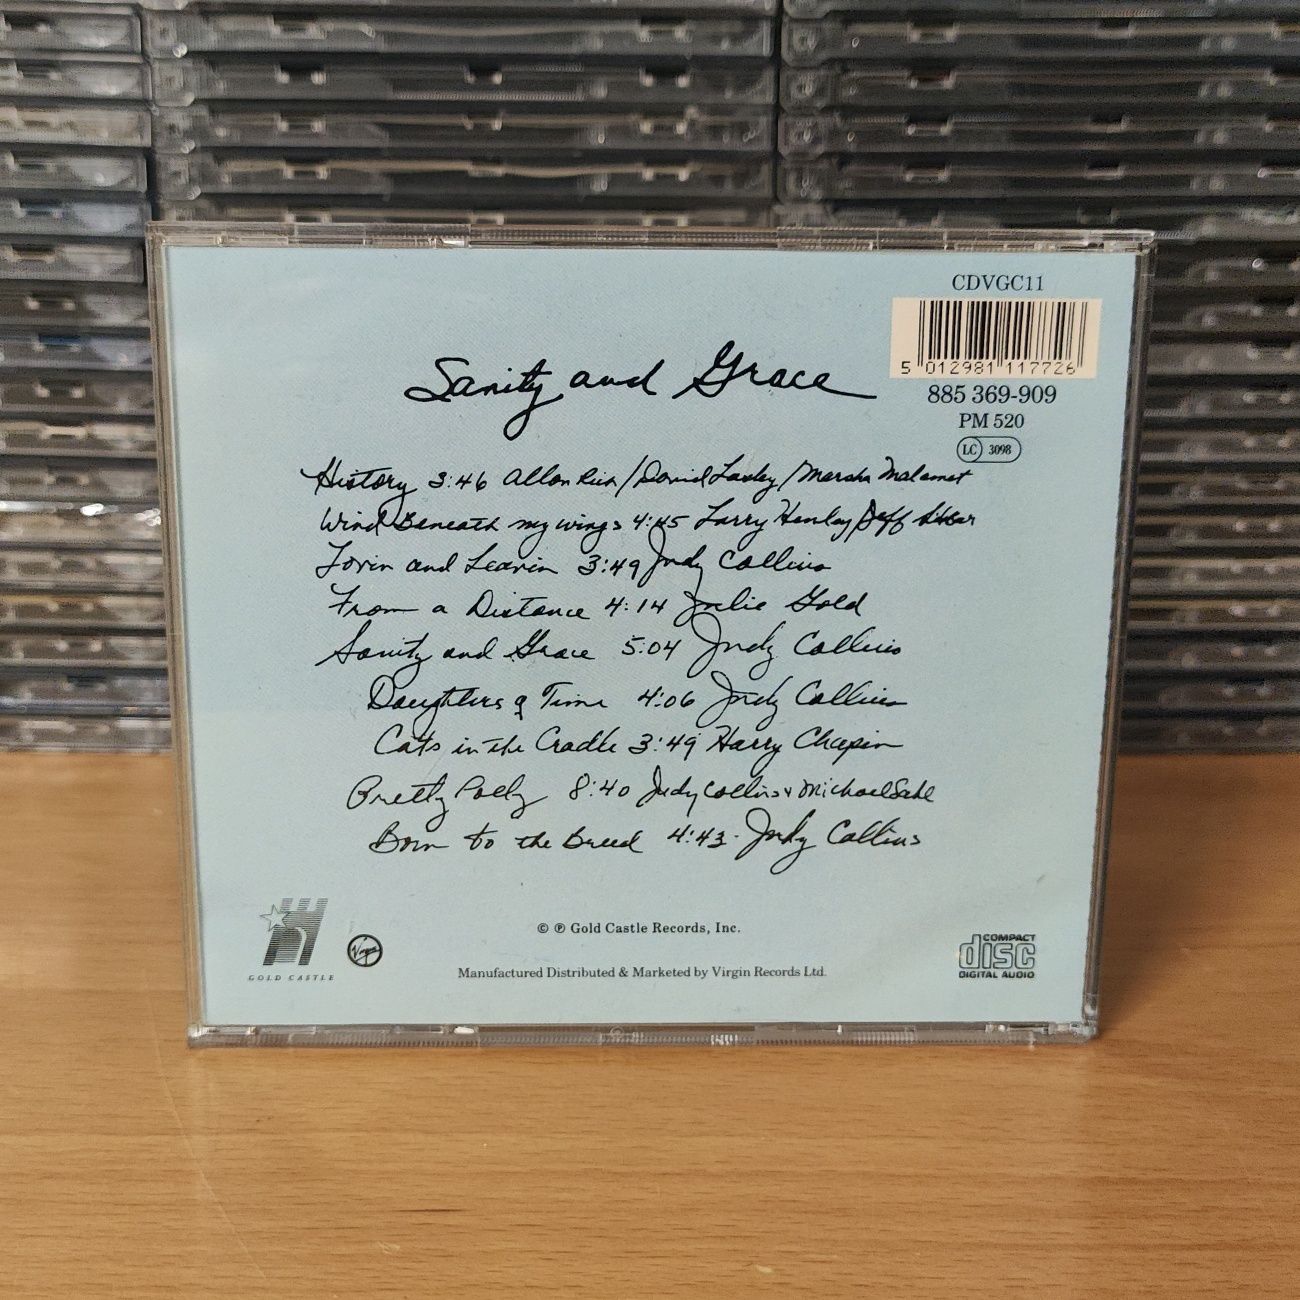 CDVGC11
5 012981 117726
885 369-909
PM 520
LC 3098
Sanity and Grace
History 3:46 Allan Rich/David Lasley/Marsha Malamet
Wind Beneath my wings 4:45 Larry Henley/Jeff Silbar
Lovin and Leavin 3:49 Judy Collins
From a Distance 4:14 Julie Gold
Sanity and Grace 5:04 Judy Collins
Daughters of Time 4:06 Judy Collins
Cats in the Cradle 3:49 Harry Chapin
Pretty Polly 8:40 Judy Collins & Michael Sahl
Born to the Breed 4:43 - Judy Collins
GOLD CASTLE
Virgin
© ℗ Gold Castle Records, Inc.
Manufactured Distributed & Marketed by Virgin Records Ltd.
COMPACT
disc
DIGITAL AUDIO